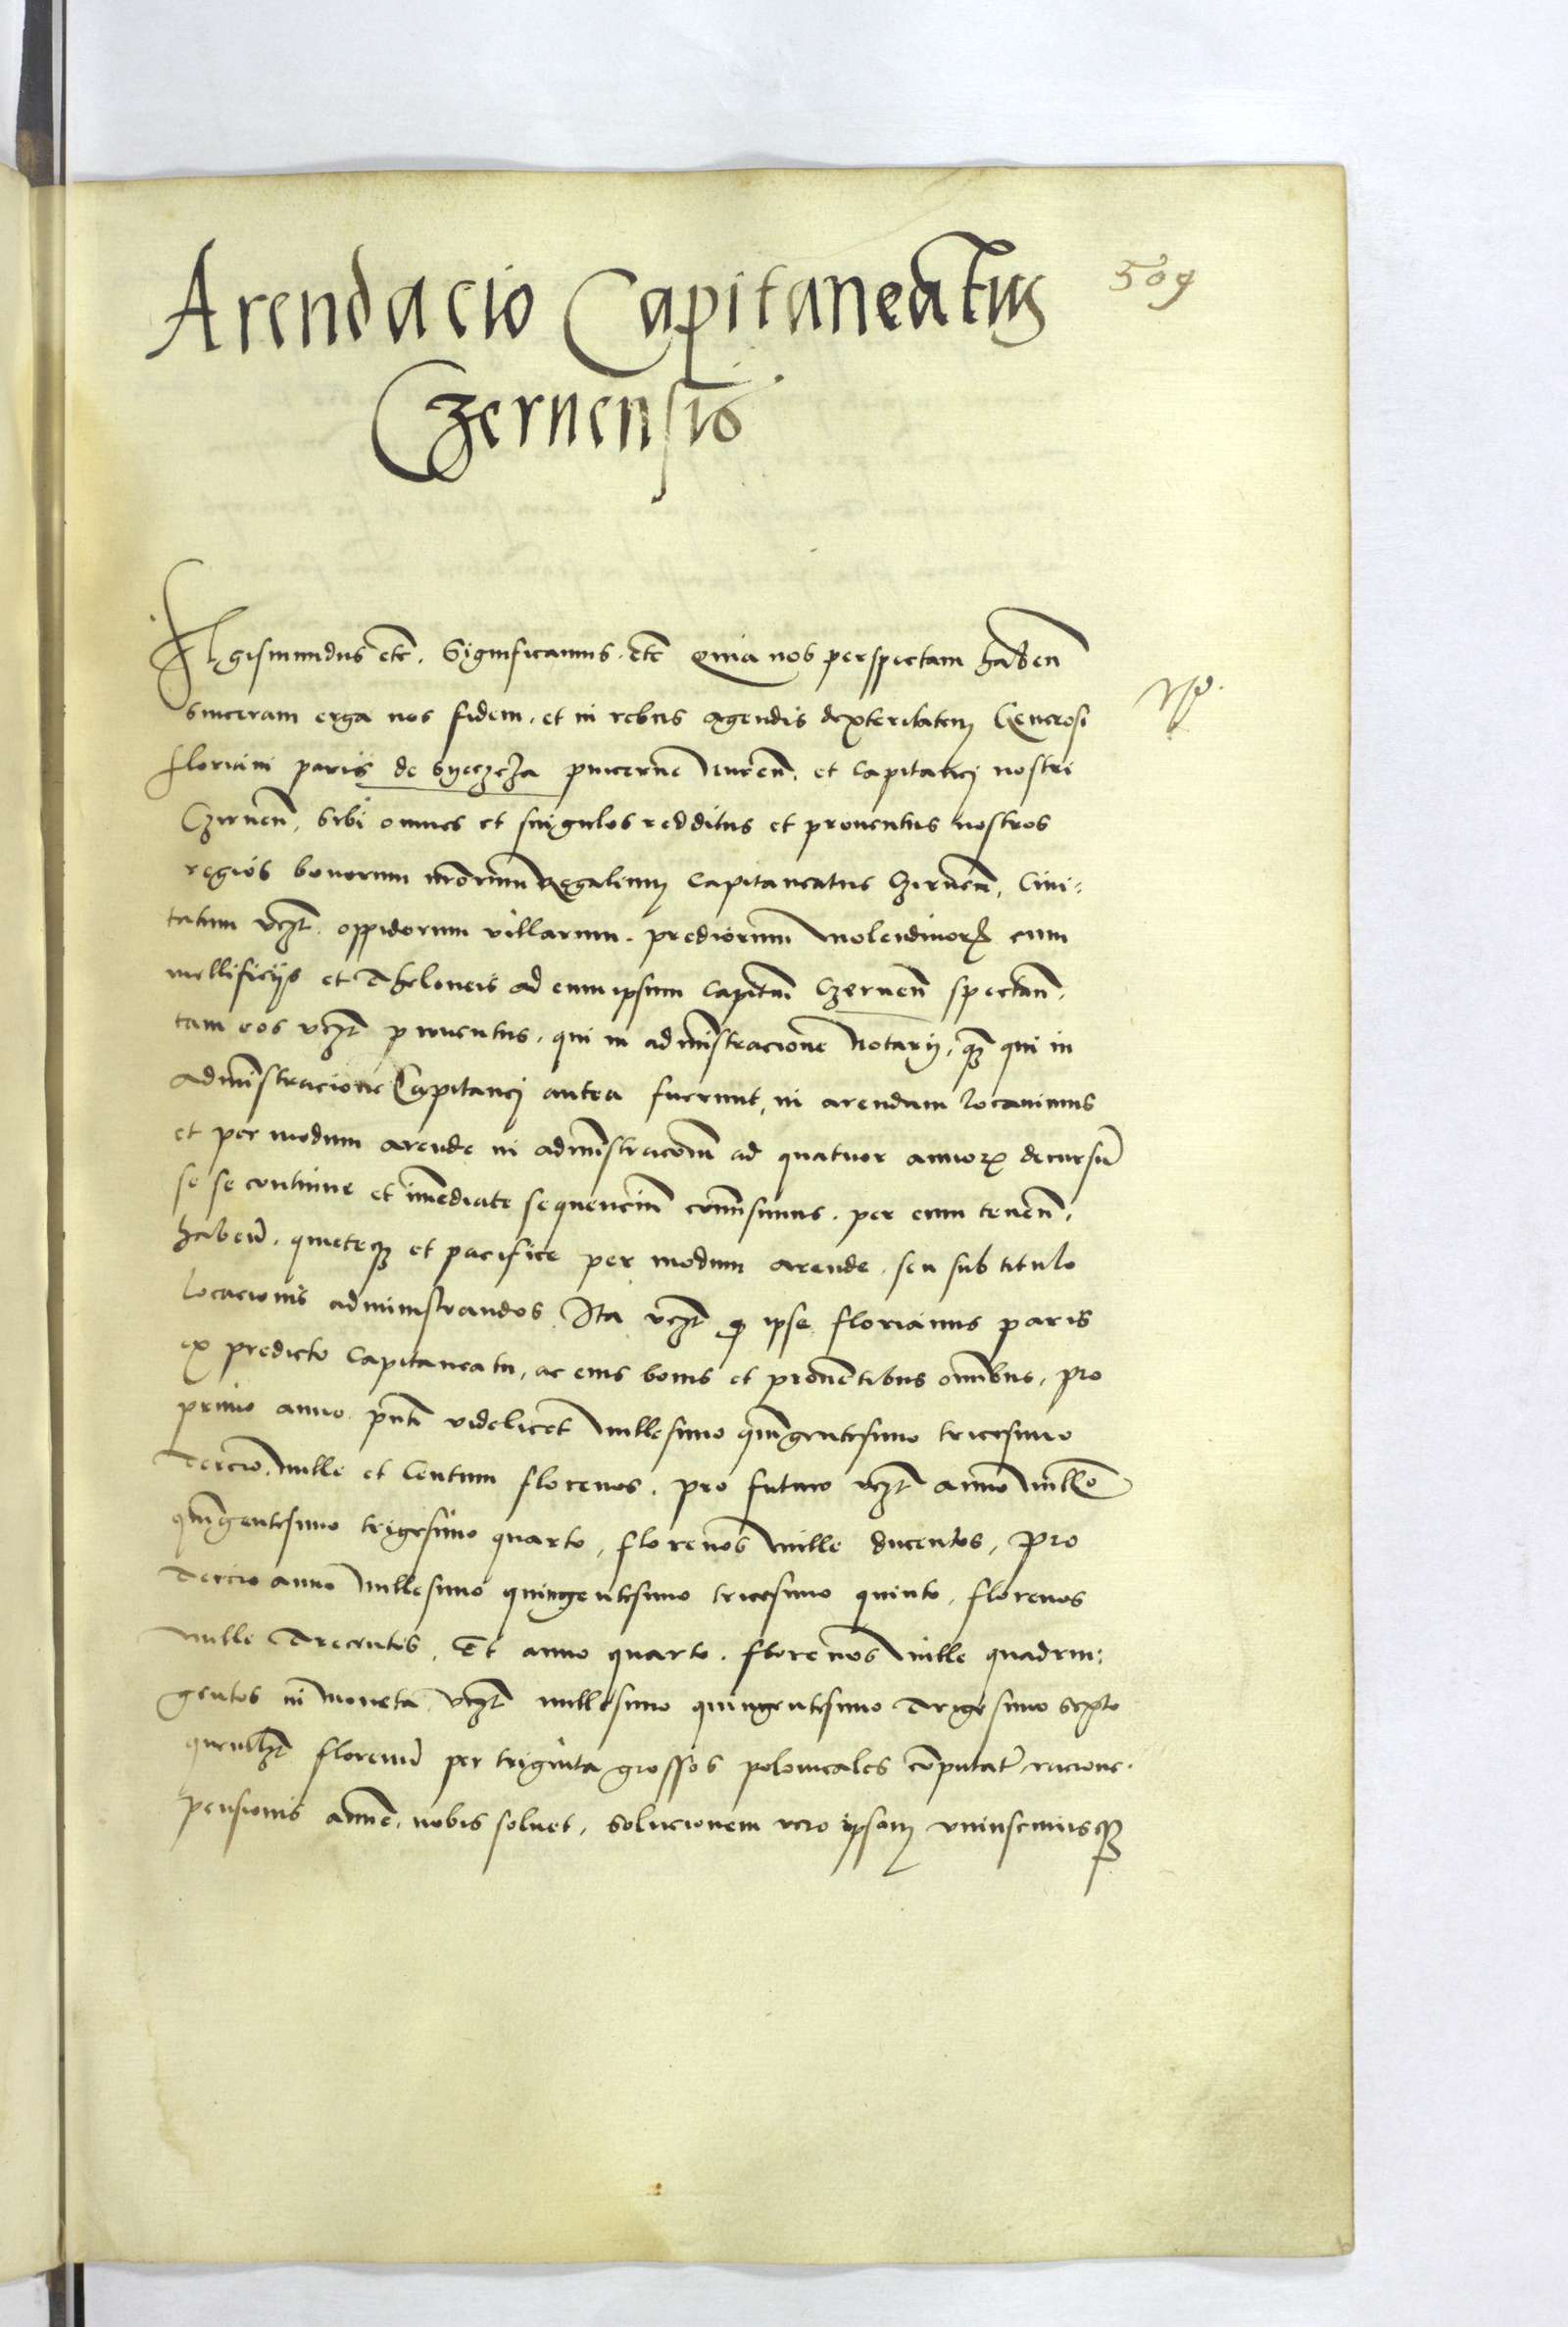 Arendacio Capitaneatus
509
Czernensis
Sigismundus etc. Significamus. etc Quia nos perspectam haben̄
sinceram erga nos fidem. et in rebus agendis dexteritatem Generosi
floriani paris de pincerne et Capitanei nostri
Czirnen̄, sibi omnes et singulos redditus et proventus nostros
regios bonorum nr̄orum Regalium Capitaneatus Czirnen̄, Civi=
tatum vcʒt. oppidorum villarum. prediorum molendinorꝝ cum
mellificijs et Theloneis ad eum ipsum Capitan̄ Czernen̄ spectan̄.
tam eos vcʒt proventus. qui in administracione Notarij, qꝫ qui in
administracione Capitanei antea fuerunt, in arendam locavimus
et per modum arende in administracōm̄ ad quatuor annorꝝ decursū
se se continue et īmediate sequenciū cōmisimus. per eum tenen̄.
haben̄. quieteqꝫ et pacifice per modum arende. seu sub titulo
locacionis administrandos. Ita vcʒt qꝫ ipse florianus paris
ex predicto Capitaneatu, ac eius bonis et proven̄tibus om̄ibus, pro
primo anno. pn̄ti videlicet Millesimo quīgentesimo tricesimo
Tercio. Mille et Centum florenos. pro futuro vcʒt anno Mill̄o
quīgentesimo trigesimo quarto, florenos Mille ducentos, Pro
Tercio anno Millesimo quingentesimo tricesimo quinto. florenos
Mille Trecentos. Et anno quarto. florenos Mille quadrin=
gentos in moneta vcʒt millesimo quingentesimo Trigesimo sexto
quēlibʒt florenū per triginta grossos polonicales cōputatʳ racione.
pensionis annue. nobis solvet. Solucionem vero ipsam uniuscuiusqꝫ